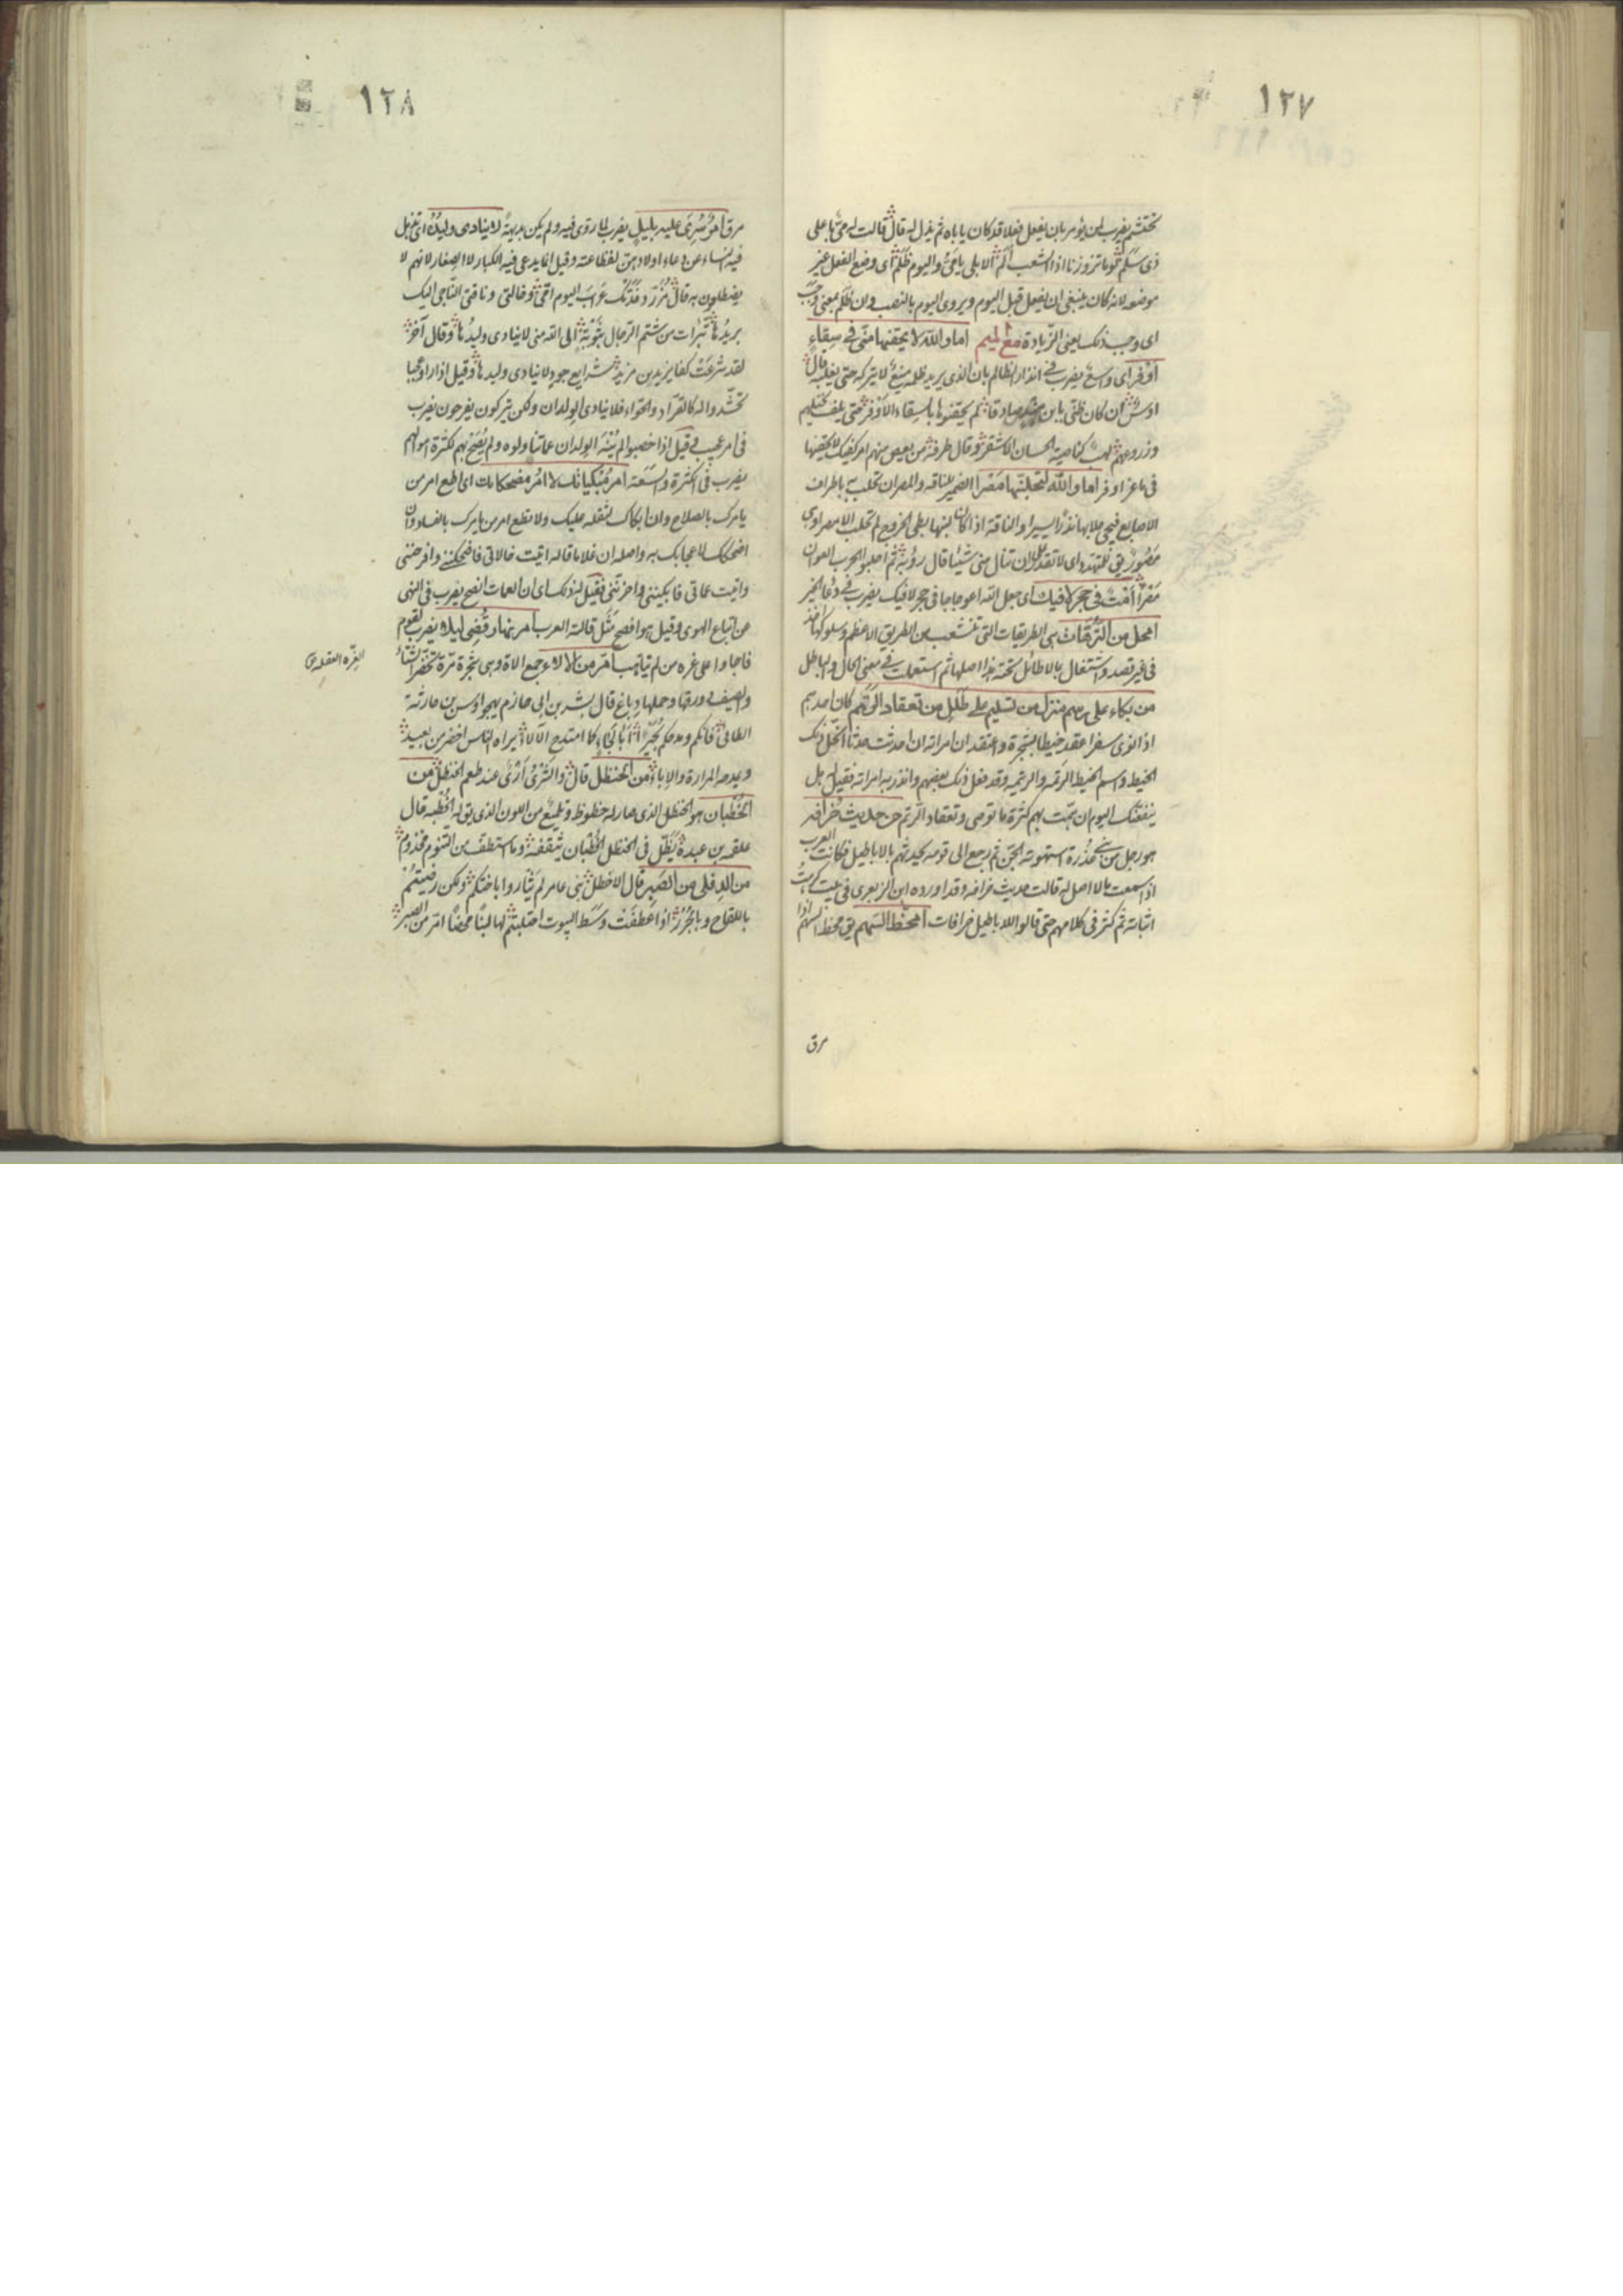 ١٢٧
تختتم يضرب لمن يؤمر بان يفعل فعلا قد كان ياباه ثم يذل له قال قالت له مي باعلى
ذي سلم لوما تزورنا اذا الشعب الم الا بلى يا مي واليوم ظلم اى وضع الفعل غير
موضعه لانه كان ينبغى ان يفعل قبل اليوم ويروى اليوم بالنصب ولان ظلم بمعنى وجب
اى وجب ذلك يعنى الزيادة مع الميم اما والله لا يحقنها منى فى سقاء
اوفر اى واسع يضرب فى انذار الظالم بان الذى يريد ظلمه منيع لا يتركه حتى يغلبه قال
اوس ان كان ظنى يا ابن صادقا لم يحقنوها بالسقاء الاوفر حتى يلف نخيلهم
وزروعهم لهب كناصية الحصان الاشقر وقال طرفة من بعض منهم امر كفيك لا يحقنها
فى ماعز اوفر اما والله لتحلبنها مصرا الضمير للناقة والمصر ان تحلب باطراف
الاصابع فيجى حلابها نذرا يسيرا والناقة اذا كان لبنها بطى الخروج لم تحلب الا مصرا وهى
مصور يق للمتهدد اى لا تقدر ان تنال منى شيئا قال رؤبة ثم احلبوا الحرب العوان
مصرا امت فى حجر لا فيك اى جعل الله اعوجاجا فى حجر لا فيك يضرب فى دعا الخير
امحل من الترهات هى الطريقات التى تنشعب من الطريق الاعظم وسلوكها اخذ
فى غير قصد واشتغال بالا طائل تحته هذا اصلها ثم استعملت فى معنى المحال والباطل
من بكاء على رسم منزل من تسليم على طلل من تعقاد الرتم كان احدهم
اذا نوى سفرا عقد خيطا بشجرة واعتقد ان امراته ان احدثت حدثا انحل ذلك
الخيط واسم الخيط الرتمة والرتيمة وقد فعل ذلك بعضهم وانذر به امراته فقيل هل
ينفعنك اليوم ان همت بهم كثرة ما توصى وتعقاد الرتم من حديث خرافة
هو رجل من بنى عذرة استهوته الجن ثم رجع الى قومه يحدثهم بالاباطيل فكانت العرب
اذا سمعت مالا اصل له قالت حديث خرافة وقد اورده ابن الزبعرى فى بيت كرهت
اثباته ثم كثر فى كلامهم حتى قالوا للاباطيل خرافات امخط السهم يق مخط السهم اذا
مرق
١٢٨
مرق امر سرى عليه بليل يضرب لما روى فيه ولم يكن بديهة لا ينادى وليده اى تذهل
فيه النساء عن دعاء اولادهن لفظاعته وقيل انما يدعى فيه الكبار لا الصغار لانهم لا
يضطلعون به قال مزرد فدتك عراب اليوم امى وخالتى وناقتى الناجى اليك
بريدها تبرات من شتم الرجال بتوبة الى الله منى لا ينادى وليدها وقال آخر
لقد شرعت كفا يزيد بن مزيد شرايع جود لا ينادى وليدها وقيل اذا راوا عجبا
تحشدوا له كالقراد والحواء فلا ينادى الولدان ولكن يتركون يفرحون يضرب
فى امر عجب قيل اذا خصبوا لم ينه الولدان عما تناولوه ولم يصح بهم لكثرة اموالهم
يضرب فى الكثرة والسعة امر مبكياتك لا امر مضحكاتك اى اطع امر من
يامرك بالصلاح وان ابكاك لثقله عليك ولا تطع امر من يامرك بالفساد وان
اضحكك لاعجابك به واصله ان غلاما قاله اتيت خالاتى فاضحكننى وافرحننى
واتيت عماتى فابكيننى واحزننى فقيل له ذلك اى ان العمات انصح يضرب فى النهى
عن اتباع الهوى وقيل هو افصح مثل قالته العرب امر نهار قضى ليلا يضرب لقوم
فاجاوا على غرة من لم يتاهب امر من الالاء جمع الاءة وهى شجرة مرة تخضر الشتاء
والصيف ورقها وحملها دباغ قال بشر بن ابى حازم يهجو اوس بن حارثة
الطائى فانكم ومدحكم بجيرا ابا لجأ كما امتدح الالاء يراه الناس اخضر من بعيد
ويمنعه المرارة والاباء من الحنظل قال والشرى ارى عند طعم الحنظل من
الخطبان هو الحنظل الذى صار له خطوط وتلميع من اللون الذى يق له الخطبة قال
علقمة بن عبدة يظل فى الحنظل الخطبان ينقفه وما استطف من التنوم مخذوم
من الدفلى من الصبر قال الاخطل بنى عامر لم تثاروا باخيكم ولكن رضيتم
باللقاح وبالجزر اذا عطفت وسط البيوت احتلبتم لها لبنا محضا امر من الصبر
الغرة الغفلة